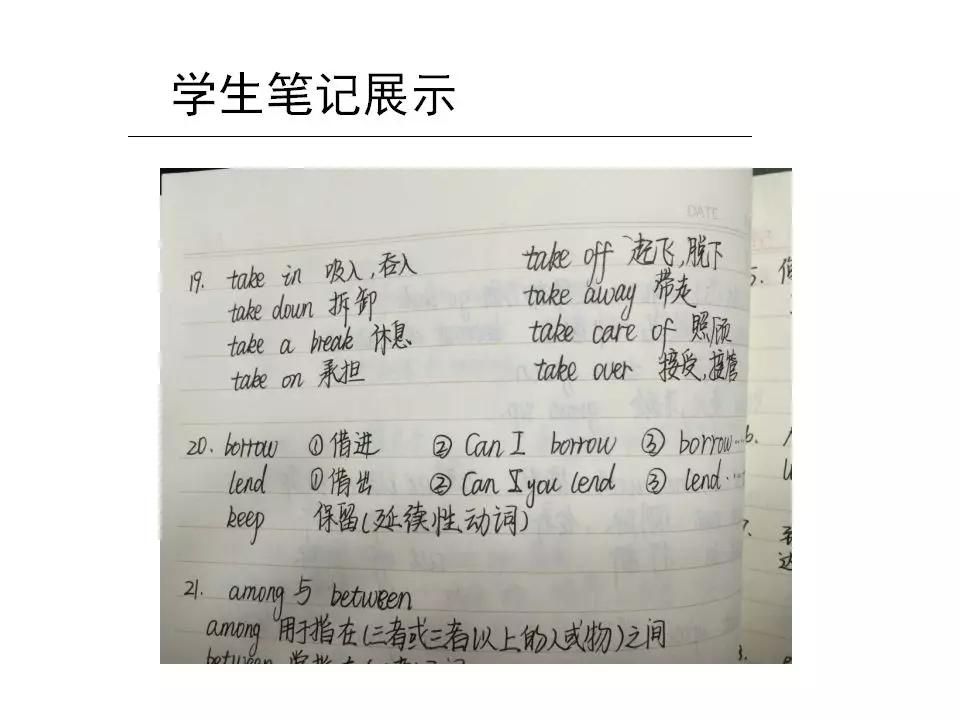 学生笔记展示
19. take in 吸入,吞入 take off 起飞,脱下
take down 拆卸 take away 带走
take a break 休息 take care of 照顾
take on 承担 take over 接受,接管
20. borrow ①借进 ② Can I borrow ③ borrow…
lend ①借出 ② Can you lend ③ lend…
keep 保留(延续性动词)
21. among 与 between
among 用于指在(三者或三者以上的人或物)之间
between
5.
6.
7.